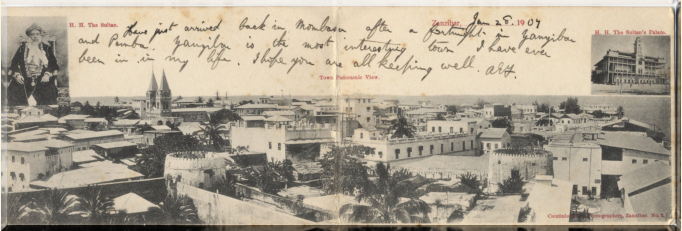 H. H. The Sultan.
Zanzibar, Jan 28. 1907
H. H. The Sultan's Palace.
Have just arrived back in Mombasa after a fortnight in Zanzibar
and Pemba. Zanzibar is the most interesting town I have ever
been in in my life. I hope you are all keeping well.
Town Panoramic View.
Zanzibar. No.